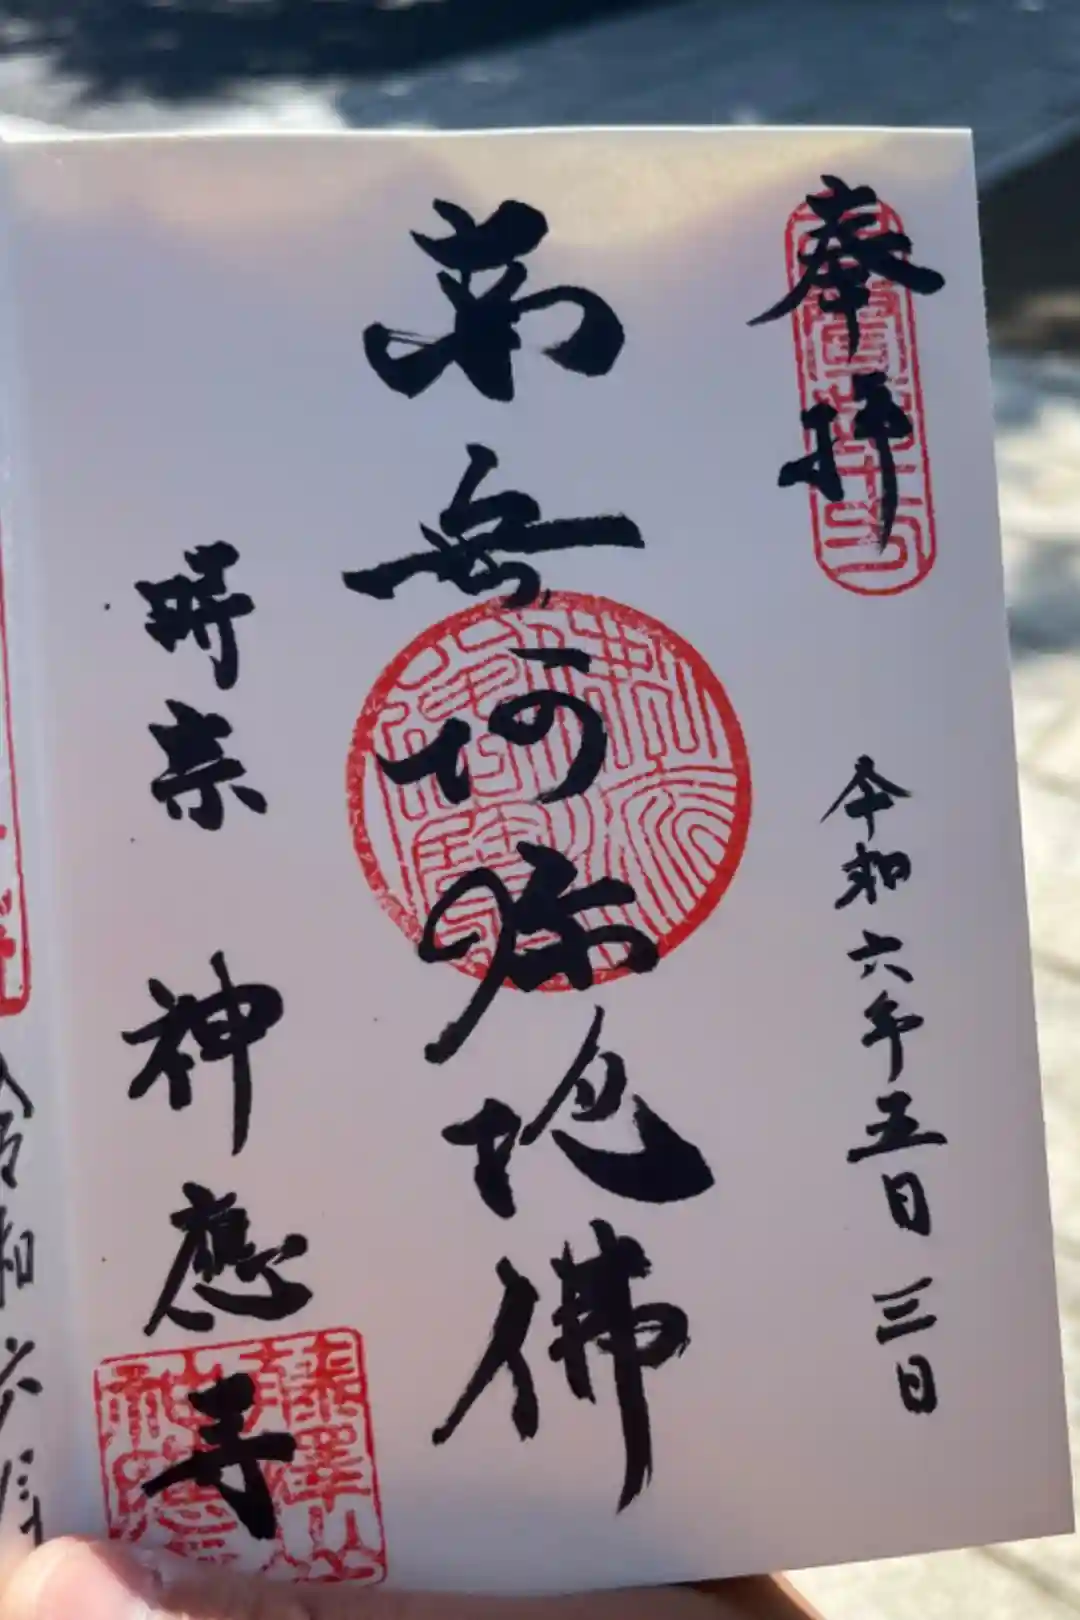 奉拝
令和六年五月三日
南無阿弥陀佛
時宗 神應寺
令和六年